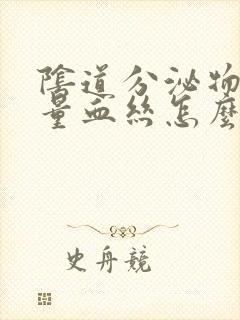 陰道分泌物
量血絲怎麼
史丹競